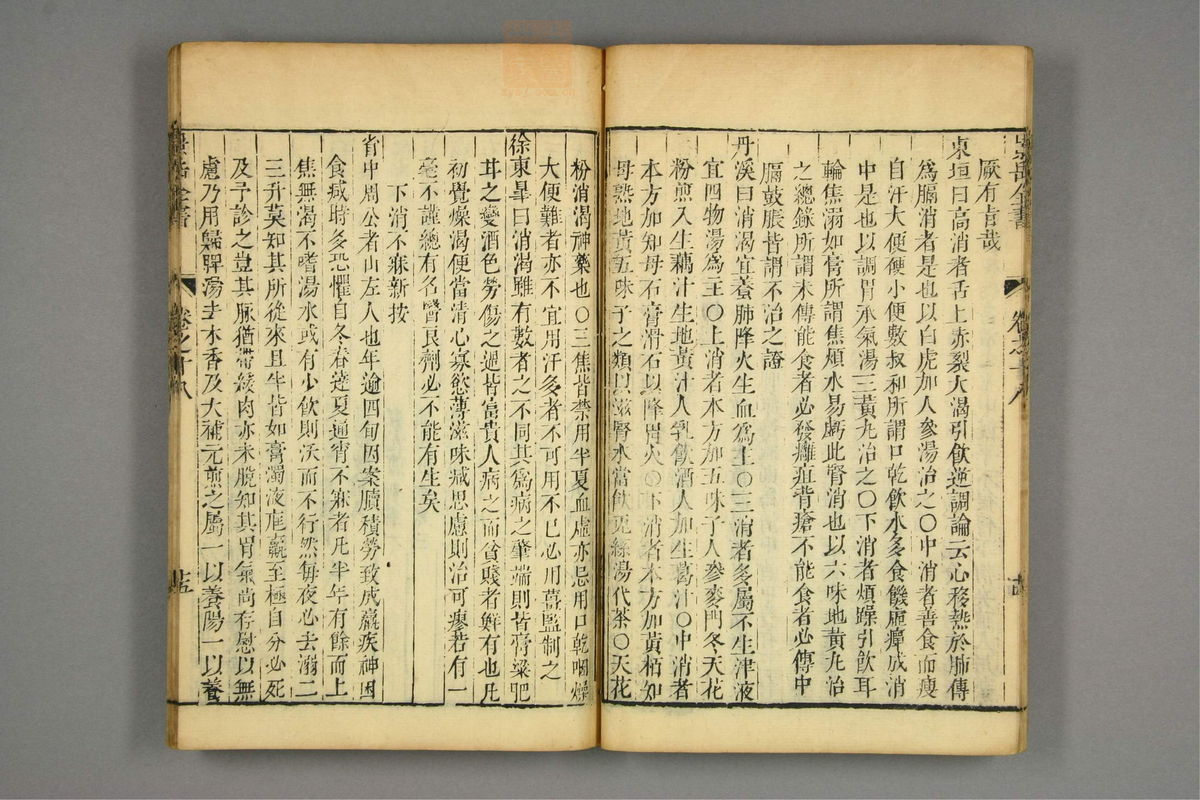 景岳全書
卷之十八
厥有旨哉
東垣曰高消者舌上赤裂大渴引飲逆調論云心移熱於肺傳
爲膈消者是也以白虎加人參湯治之〇中消者善食而瘦
自汗大便硬小便數叔和所謂口乾飲水多食饑虛癉成消
中是也以調胃承氣湯三黃丸治之〇下消者煩躁引飲耳
輪焦溺如膏所謂焦煩水易虧此腎消也以六味地黃丸治
之總錄所謂末傳能食者必發癰疽背瘡不能食者必傳中
膈鼓脹皆謂不治之證
丹溪曰消渴宜養肺降火生血爲主〇三消者多屬不生津液
宜四物湯爲主〇上消者本方加五味子人參麥門冬天花
粉煎入生藕汁生地黃汁人乳飲酒人加生葛汁〇中消者
本方加知母石膏滑石以降胃火〇下消者本方加黃栢知
母熟地黃五味子之類以滋腎水當飲繅絲湯代茶〇天花
粉消渴神藥也〇三焦皆禁用半夏血虛亦忌用口乾咽燥
大便難者亦不宜用汗多者不可用不已必用薑監制之
徐東臯曰消渴雖有數者之不同其爲病之肇端則皆膏粱肥
甘之變酒色勞傷之過皆富貴人病之而貧賤者鮮有也凡
初覺燥渴便當清心寡慾薄滋味減思慮則治可瘳若有一
毫不謹總有名醫良劑必不能有生矣
下消不寐新按
省中周公者山左人也年逾四旬因案牘積勞致成羸疾神困
食減時多恐懼自冬春達夏通宵不寐者凡半年有餘而上
焦無渴不嗜湯水或有少飲則沃而不行然每夜必去溺二
三升莫知其所從來且半皆如膏濁液尫羸至極自分必死
及予診之豈其脉猶帶緩肉亦未脫知其胃氣尚存慰以無
慮乃用歸脾湯去木香及大補元煎之屬一以養陽一以養
景岳全書
卷之十八